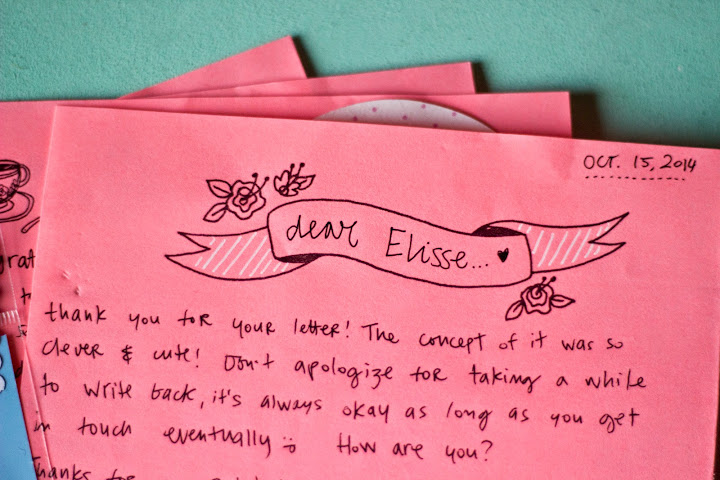 OCT. 15, 2014
dear Elisse...
thank you for your letter! The concept of it was so
clever & cute! Don't apologize for taking a while
to write back, it's always okay as long as you get
in touch eventually :) How are you?
Thanks for